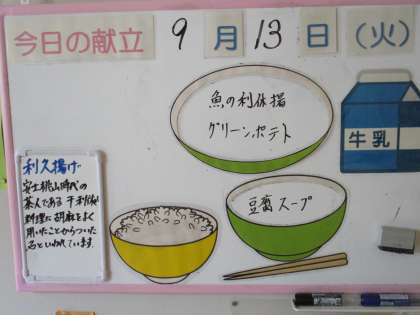 今日の献立 9月13日(火)
魚の利休揚
グリーンポテト
牛乳
豆腐スープ
利久揚げ
安土桃山時代の
茶人である 千利休が
料理に胡麻をよく
用いたことからついた
るといわれています。